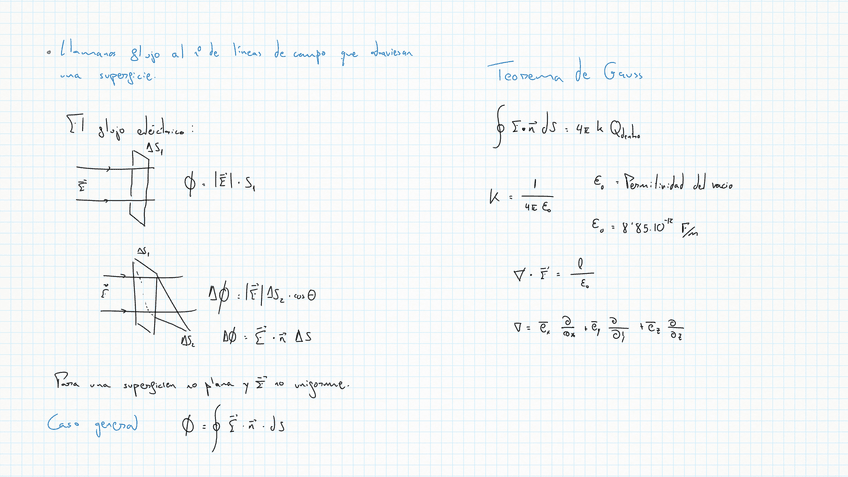 • Llamamos flujo al nº de líneas de campo que atraviesan
una superficie.
El flujo eléctrico:
ΔS₁
E⃗
ϕ = |E⃗| · S₁
ΔS₁
E⃗
Δϕ = |E⃗| ΔS₂ · cos θ
Δϕ = E⃗ · n⃗ ΔS
ΔS₂
Para una superficie no plana y E⃗ no uniforme.
Caso general ϕ = ∮ E⃗ · n⃗ · dS
Teorema de Gauss
∮ E · n⃗ dS = 4π k Q dentro
K = 1 / 4π ε₀
ε₀ = Permitividad del vacio
ε₀ = 8'85·10⁻¹² F/m
∇ · E⃗ = ρ / ε₀
∇ = e̅ₓ ∂/∂x + e̅ᵧ ∂/∂y + e̅_z ∂/∂z